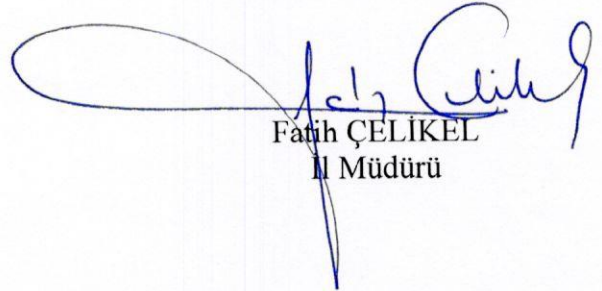 Fatih ÇELİKEL
İl Müdürü